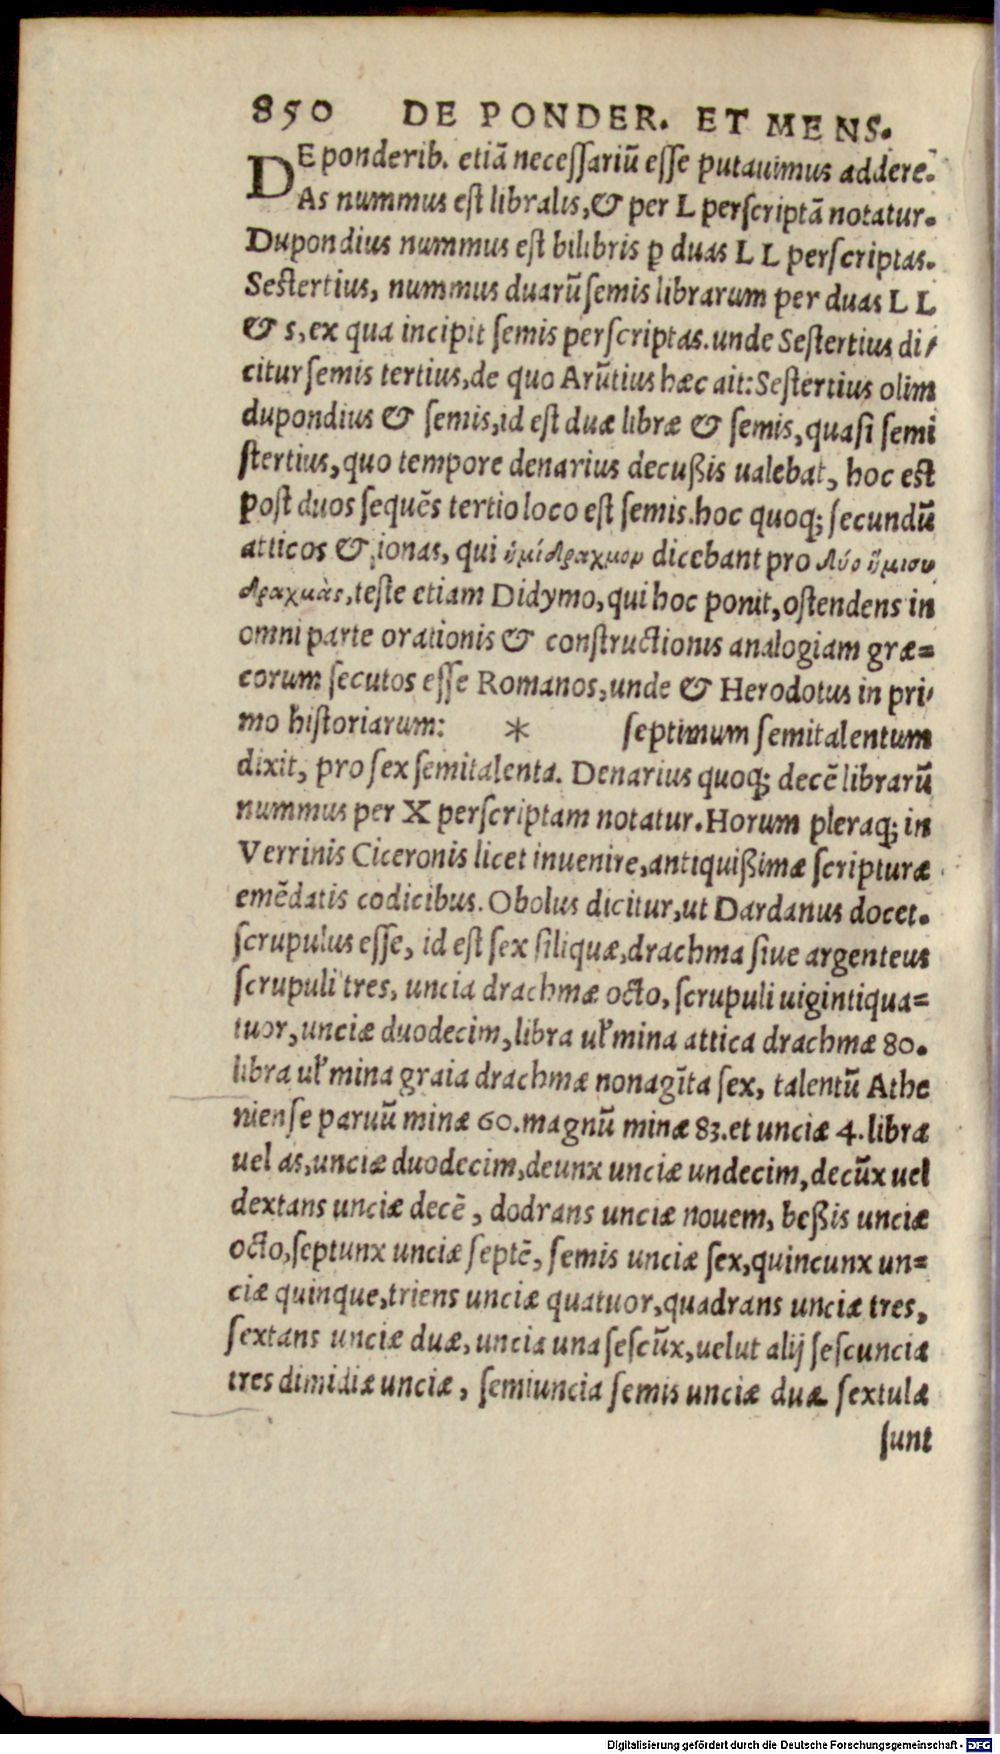 850 DE PONDER. ET MENS.
DE ponderib. etiã neceſſariũ eſſe putauimus addere.
As nummus eſt libralis, & per L perſcriptã notatur.
Dupondius nummus eſt bilibris ꝑ duas L L perſcriptas.
Seſtertius, nummus duarũ ſemis librarum per duas L L
& s, ex qua incipit ſemis perſcriptas. unde Seſtertius di⸗
citur ſemis tertius, de quo Arũtius hæc ait: Seſtertius olim
dupondius & ſemis, id eſt duæ libræ & ſemis, quaſi ſemi
ſtertius, quo tempore denarius decußis ualebat, hoc eſt
poſt duos ſequẽs tertio loco eſt ſemis. hoc quoq; ſecundũ
atticos & ionas, qui ἡμίδραχμον dicebant pro δύο ἥμισυ
δραχμὰς, teſte etiam Didymo, qui hoc ponit, oſtendens in
omni parte orationis & conſtructionis analogiam græ⸗
corum ſecutos eſſe Romanos, unde & Herodotus in pri⸗
mo hiſtoriarum: * ſeptimum ſemitalentum
dixit, pro ſex ſemitalenta. Denarius quoq; decẽ librarũ
nummus per X perſcriptam notatur. Horum pleraq; in
Verrinis Ciceronis licet inuenire, antiquißimæ ſcripturæ
emẽdatis codicibus. Obolus dicitur, ut Dardanus docet.
ſcrupulus eſſe, id eſt ſex ſiliquæ, drachma ſiue argenteus
ſcrupuli tres, uncia drachmæ octo, ſcrupuli uigintiqua⸗
tuor, unciæ duodecim, libra uł mina attica drachmæ 80.
libra uł mina graia drachmæ nonagĩta ſex, talentũ Athe
nienſe paruũ minæ 60. magnũ minæ 83. et unciæ 4. libra
uel as, unciæ duodecim, deunx unciæ undecim, decũx uel
dextans unciæ decẽ, dodrans unciæ nouem, beßis unciæ
octo, ſeptunx unciæ ſeptẽ, ſemis unciæ ſex, quincunx un⸗
ciæ quinque, triens unciæ quatuor, quadrans unciæ tres,
ſextans unciæ duæ, uncia una ſeſcũx, uelut alij ſeſcuncia
tres dimidiæ unciæ, ſemiuncia ſemis unciæ duæ ſextulæ
ſunt
Digitalisierung gefördert durch die Deutsche Forschungsgemeinschaft - DFG